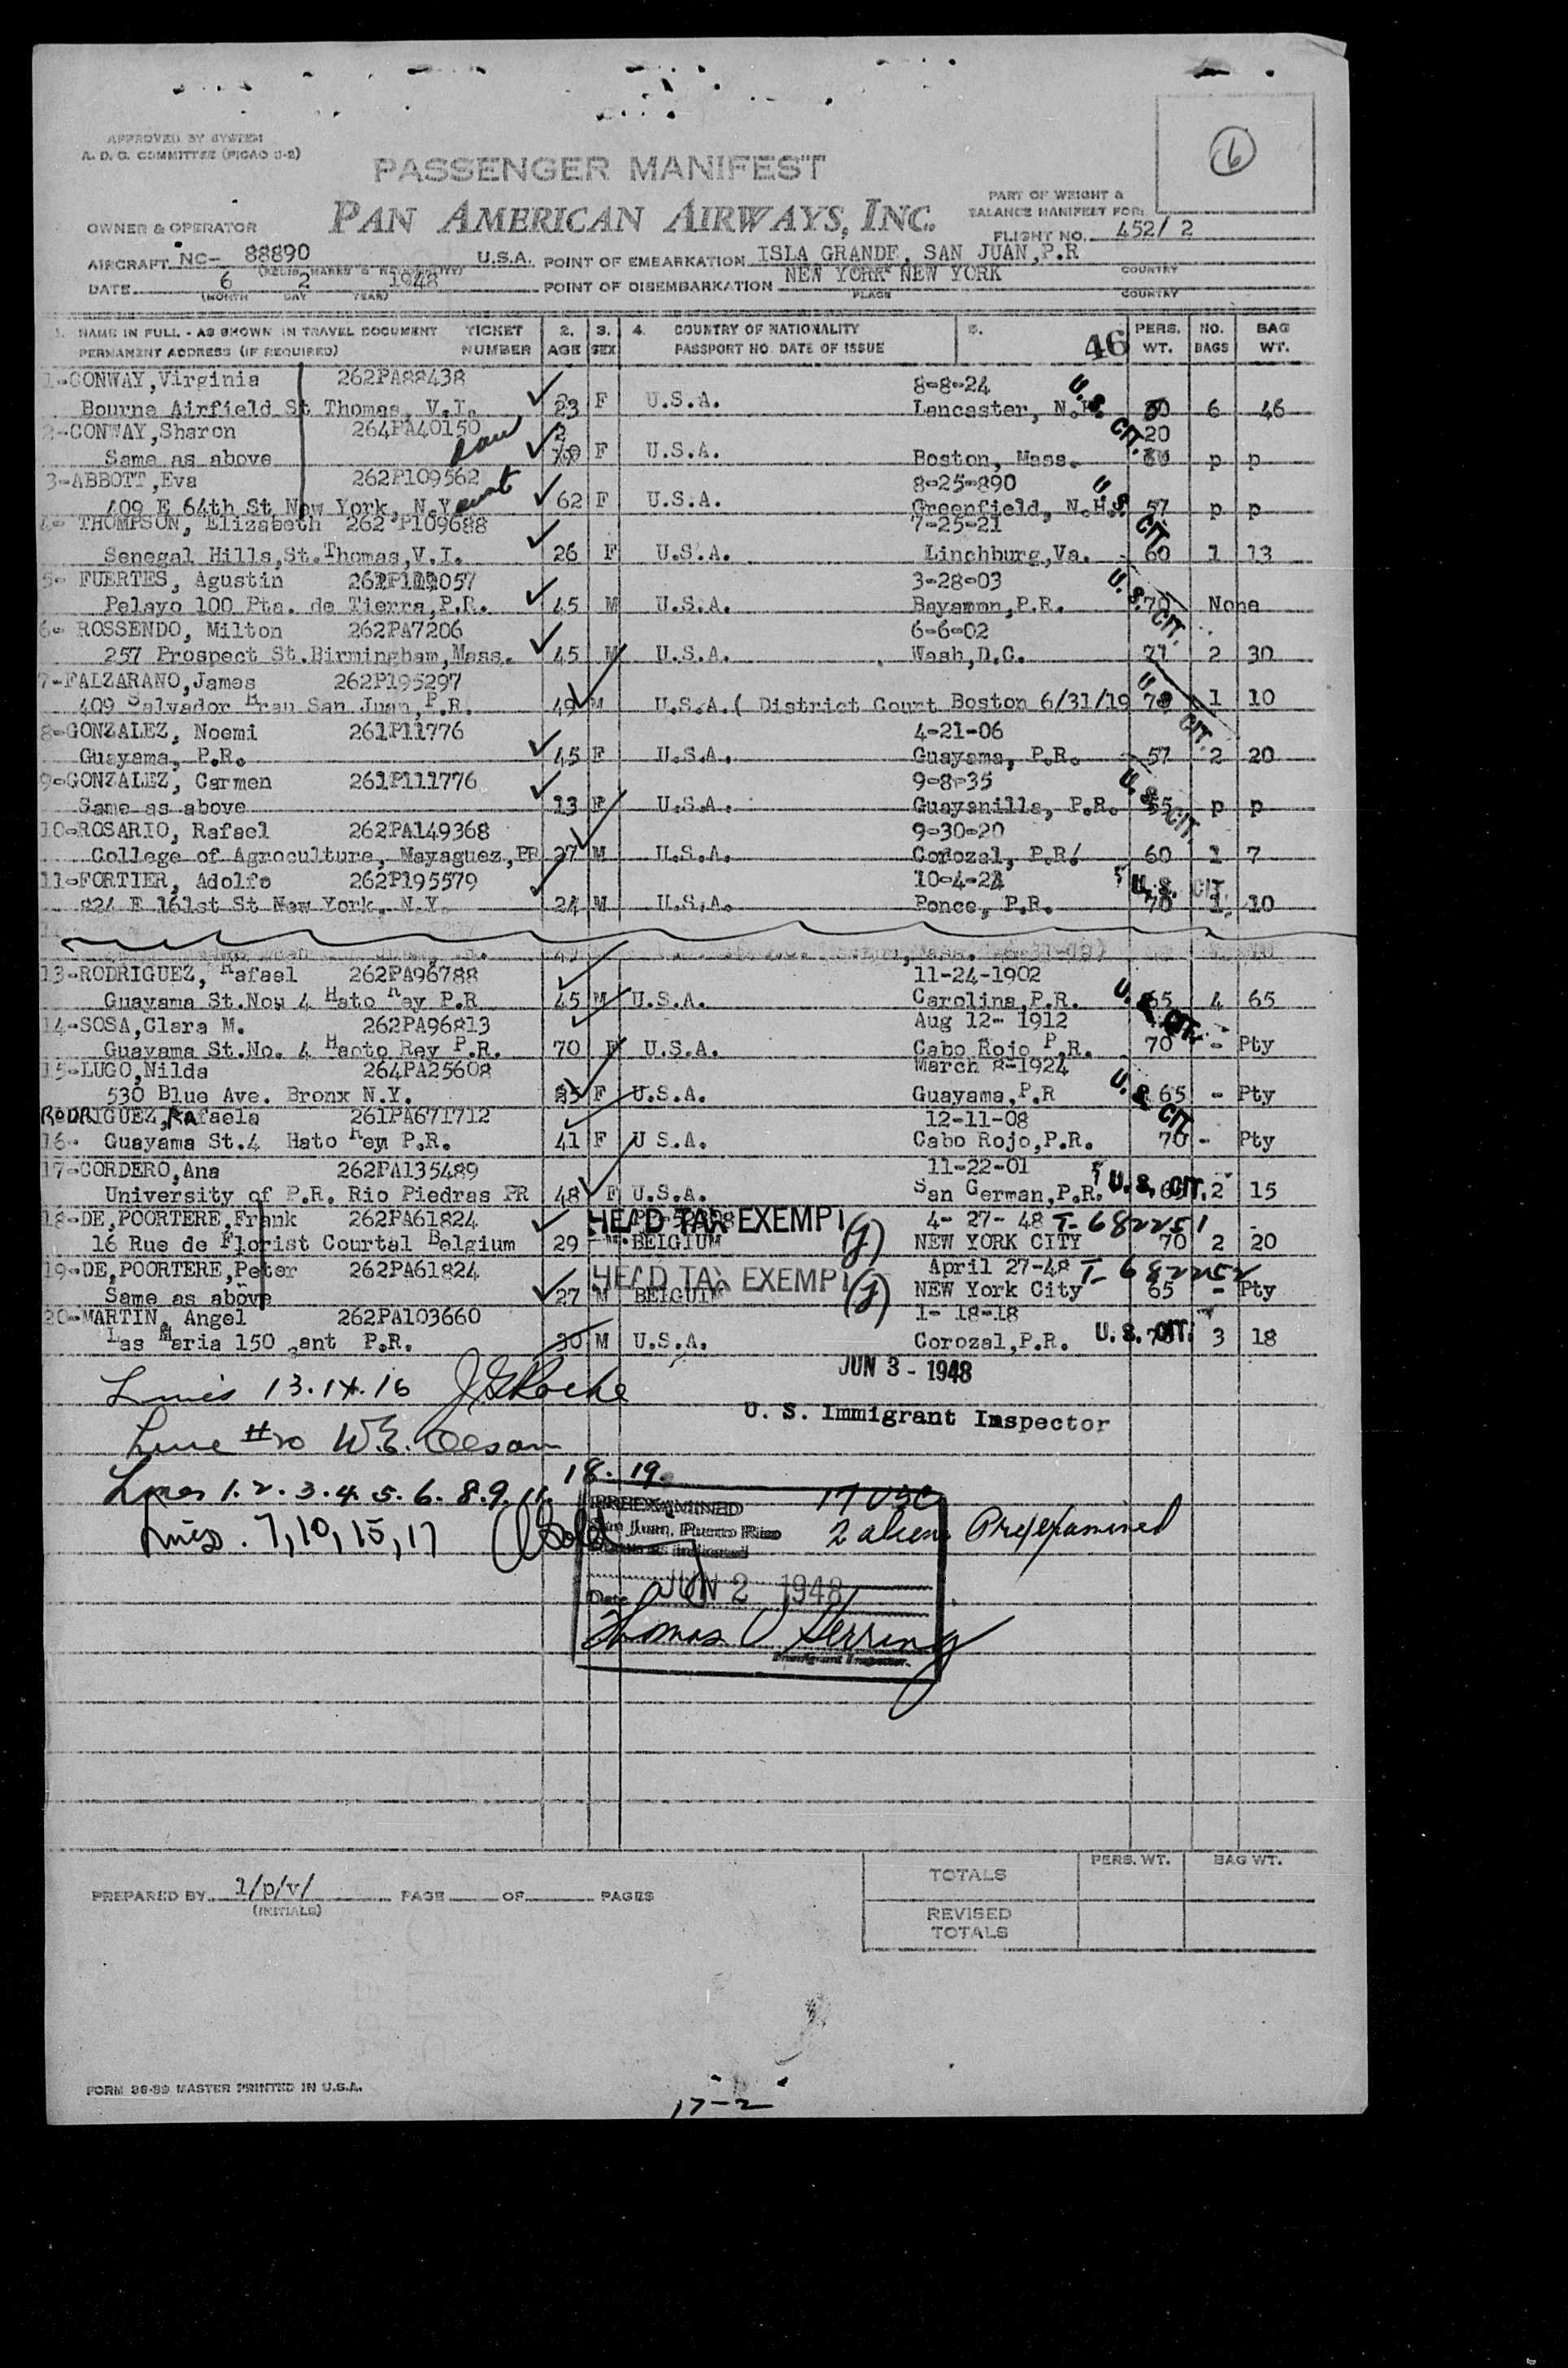 APPROVED BY SYSTEM
A. D. C. COMMITTEE (PICAO S-2)
6
PASSENGER MANIFEST
PAN AMERICAN AIRWAYS, INC.
PART OF WEIGHT &
BALANCE MANIFEST FOR:
OWNER & OPERATOR
FLIGHT NO. 452/ 2
AIRCRAFT NC- 88890 U.S.A. POINT OF EMBARKATION ISLA GRANDE, SAN JUAN,P.R
COUNTRY
DATE 6 2 1948 POINT OF DISEMBARKATION NEW YORK NEW YORK
(MONTH DAY YEAR) PLACE COUNTRY
1. NAME IN FULL - AS SHOWN IN TRAVEL DOCUMENT TICKET 2. 3. 4. COUNTRY OF NATIONALITY 5. PERS. NO. BAG
PERMANENT ADDRESS (IF REQUIRED) NUMBER AGE SEX PASSPORT NO. DATE OF ISSUE 46 WT. BAGS WT.
1-CONWAY,Virginia 262PA88438 8-8-24
Bourne Airfield St Thomas, V.I. 23 F U.S.A. Lancaster, N.H. U.S. CIT. 6 46
2-CONWAY,Sharon 264PA40150 2 20
Same as above F U.S.A. Boston, Mass. p p
3-ABBOTT,Eva 262P109562 8-25-890
409 E 64th St New York, N.Y. 62 F U.S.A. Greenfield, N.H. U.S. CIT. 57 p p
4- THOMPSON, Elizabeth 262 P109688 7-25-21
Senegal Hills,St.Thomas,V.I. 26 F U.S.A. Linchburg,Va. 60 1 13
5- FUERTES, Agustin 3-28-03
Pelayo 100 Pta. de Tierra,P.R. 45 M U.S.A. Bayamon,P.R. U.S. CIT. 70 None
6- ROSSENDO, Milton 262PA7206 6-6-02
257 Prospect St.Birmingham,Mass. 45 M U.S.A. Wash,D.C. 71 2 30
7-FALZARANO,James 262P195297
409 Salvador Brau San Juan,P.R. 49 M U.S.A.( District Court Boston 6/31/19 U.S. CIT. 1 10
8-GONZALEZ, Noemi 261P11776 4-21-06
Guayama, P.R. 45 F U.S.A. Guayama, P.R. 57 2 20
9-GONZALEZ, Carmen 261P111776 9-8-35
Same as above 13 F U.S.A. Guayanilla, P.R. U.S. CIT. p p
10-ROSARIO, Rafael 262PA149368 9-30-20
College of Agroculture, Mayaguez,PR 27 M U.S.A. Corozal, P.R. 60 1 7
11-FORTIER, Adolfo 262P195579 10-4-24 U.S. CIT.
824 E 161st St New York, N.Y. 24 M U.S.A. Ponce, P.R. 70 1 10
13-RODRIGUEZ, Rafael 262PA96788 11-24-1902
Guayama St.No. 4 Hato Rey P.R 45 M U.S.A. Carolina,P.R. U.S. CIT. 65 4 65
14-SOSA,Clara M. 262PA96813 Aug 12- 1912
Guayama St.No. 4 Haoto Rey P.R. 70 F U.S.A. Cabo Rojo P.R. 70 - Pty
15-LUGO,Nilda 264PA25608 March 8-1924
530 Blue Ave. Bronx N.Y. F U.S.A. Guayama,P.R U.S. CIT. 65 - Pty
RODRIGUEZ,RAfaela 261PA671712 12-11-08
16- Guayama St.4 Hato Rey P.R. 41 F U S.A. Cabo Rojo,P.R. 70 - Pty
17-CORDERO,Ana 262PA135489 11-22-01
University of P.R. Rio Piedras PR 48 F U.S.A. San German,P.R. U.S. CIT. 2 15
18-DE,POORTERE,Frank 262PA61824 HEAD TAX EXEMPT (J) 4- 27- 48 T- 682251
16 Rue de Florist Courtal Belgium 29 M BELGIUM NEW YORK CITY 70 2 20
19-DE,POORTERE,Peter 262PA61824 HEAD TAX EXEMPT (J) April 27-48 T- 682252
Same as above 27 M BELGUIM NEW York City 65 - Pty
20-MARTIN, Angel 262PA103660 1- 18-18
Las Maria 150 Sant P.R. 30 M U.S.A. Corozal,P.R. U.S. CIT. 3 18
JUN 3 - 1948
Lines 13.14.16 J G Roche
U. S. Immigrant Inspector
Line #20 W.E.
18. 19.
Lines 1. 2. 3. 4. 5. 6. 8. 9. 11. 17 USC
Lines. 7, 10, 15, 17 2 aliens Preexamined
PREEXAMINED
San Juan, Puerto Rico
Date JUN 2 1948
Thomas Herring
Immigrant Inspector
TOTALS PERS. WT. BAG WT.
PREPARED BY 1/p/v/ PAGE OF PAGES
(INITIALS)
REVISED
TOTALS
FORM 36-39 MASTER PRINTED IN U.S.A.
17-2